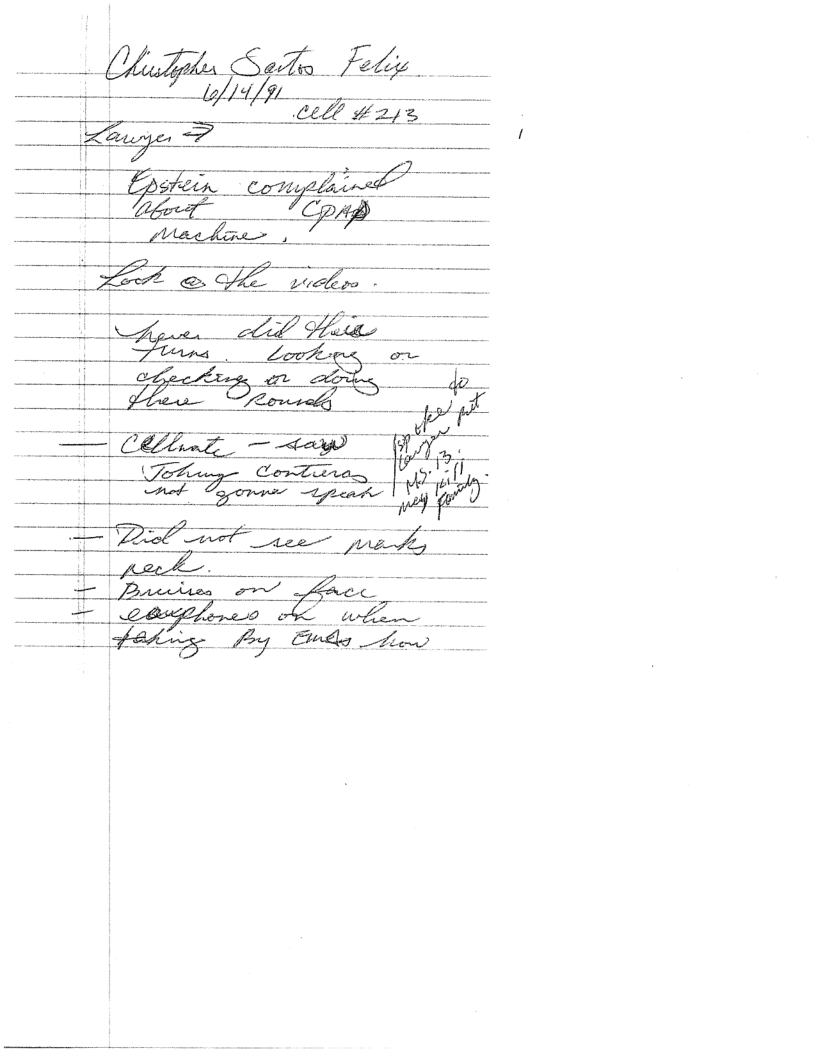 Christopher Santos Felix
6/14/91
cell #213
Lawyer →
Epstein complained
about CPAP
Machine,
Look @ the videos.
never did their
turns. Looking or
checking or doing
there Rounds
— Cellmate – says
Johnny Contreras
not gonna speak
spoke to
lawyer put
MS. 13.
may kill
family.
— Did not see marks
neck.
— Bruises on face
— earphones on when
taking By how